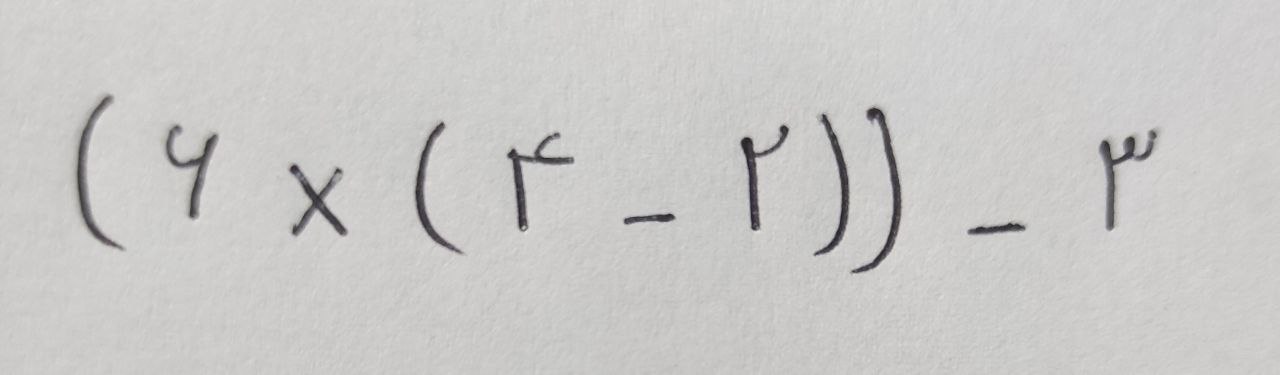 (۶ × (۴ - ۲)) - ۳